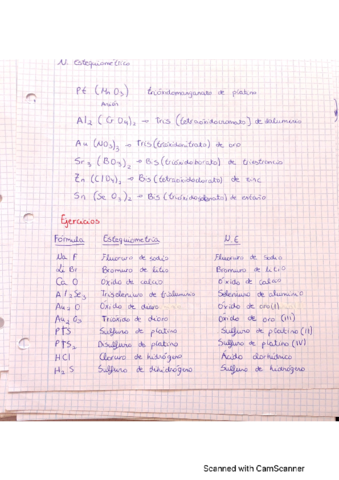 N. Estequiométrica
Pt (Mn O3) trióxidomanganato de platino
Anión
Al2 (Cr O4)3 → Tris (tetraoxidocromato) de dialuminio
Au (NO3)3 → Tris (trioxidonitrato) de oro
Sr3 (BO3)2 → Bis (trioxidoborato) de triestroncio
Zn (ClO4)2 → Bis (tetraoxidoclorato) de zinc
Sn (Se O3)2 → Bis (trioxidoselenato) de estaño
Ejercicios
Fórmula Estequiometría N.E
Na F Fluoruro de sodio Fluoruro de sodio
Li Br Bromuro de litio Bromuro de litio
Ca O Oxido de calcio Óxido de calcio
Al2Se3 Triseleniuro de dialuminio Seleniuro de aluminio
Au2 O Oxido de dioro Oxido de oro (I)
Au2 O3 Trióxido de dioro Oxido de oro (III)
PtS Sulfuro de platino Sulfuro de platino (II)
PtS2 Disulfuro de platino Sulfuro de platino (IV)
HCl Cloruro de hidrógeno Ácido clorhídrico
H2 S Sulfuro de dihidrógeno Sulfuro de hidrógeno
Scanned with CamScanner